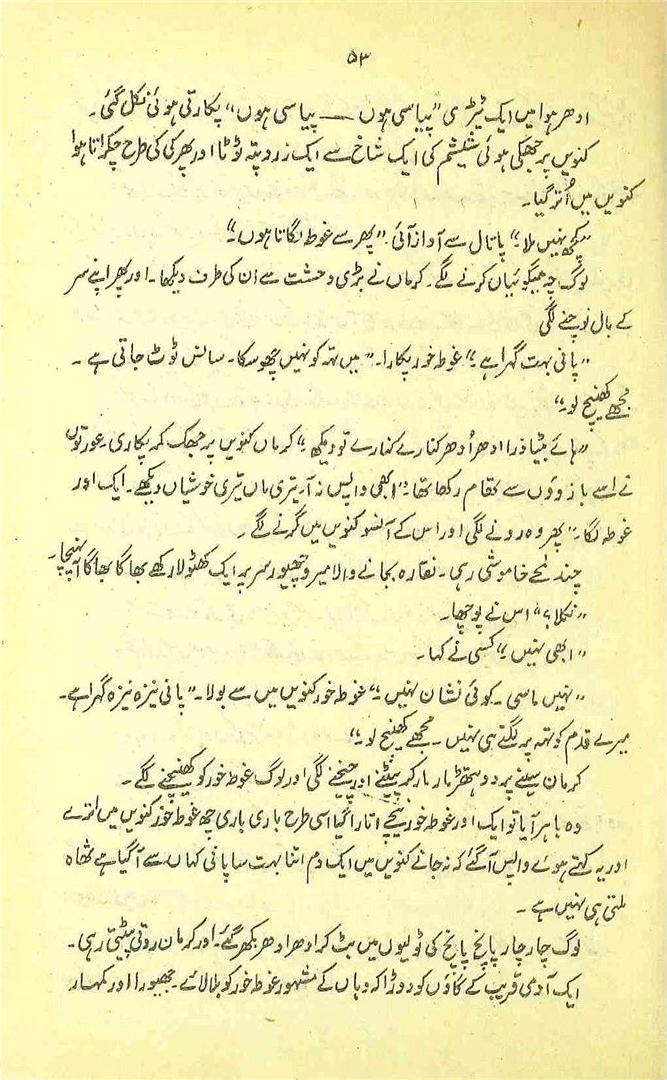 ۵۳
ادھر ہوا میں ایک ٹیڑی ”پیاسی ہوں —— پیاسی ہوں“ پکارتی ہوئی نکل گئی۔
کنویں پر جھکی ہوئی شیشم کی ایک شاخ سے ایک زرد پتہ ٹوٹا اور پھرکی کی طرح چکراتا ہوا
کنویں میں اُتر گیا۔
”کچھ نہیں ملا۔“ پاتال سے آواز آئی۔ ”پھر سے غوطہ لگاتا ہوں۔“
لوگ چہ میگوئیاں کرنے لگے۔ کرماں نے بڑی وحشت سے اُن کی طرف دیکھا۔ اور پھر اپنے سر
کے بال نوچنے لگی
”پانی بہت گہرا ہے۔“ غوطہ خور پکارا۔ ”میں تہہ کو نہیں چھو سکا۔ سانس ٹوٹ جاتی ہے۔
مجھے کھینچ لو۔“
”ہائے بیٹا ذرا ادھر اُدھر کنارے کنارے تو دیکھ۔“ کرماں کنویں پر جھک کر پکاری۔ عورتوں
نے اسے بازوؤں سے تھام رکھا تھا۔ ”ابھی واپس نہ آ۔ تیری ماں تیری خوشیاں دیکھے۔ ایک اور
غوطہ لگا۔“ پھر وہ رونے لگی اور اس کے آنسو کنویں میں گرنے لگے۔
چند لمحے خاموشی رہی۔ نقارہ بجانے والا میرو جھیور سر پر ایک کھٹولا رکھے بھاگا بھاگا آ پہنچا۔
”نکلا؟“ اس نے پوچھا۔
”ابھی نہیں۔“ کسی نے کہا۔
”نہیں ماسی۔ کوئی نشان نہیں۔“ غوطہ خور کنویں میں سے بولا۔ ”پانی نیزہ نیزہ گہرا ہے۔
میرے قدم تو تہہ پر لگتے ہی نہیں۔ مجھے کھینچ لو۔“
کرمان سینے پر دو ہتھڑ مار مار کر پیٹنے اور چیخنے لگی اور لوگ غوطہ خور کو کھینچنے لگے۔
وہ باہر آیا تو ایک اور غوطہ خور نیچے اتارا گیا اسی طرح باری باری چھ غوطہ خور کنویں میں اترے
اور یہ کہتے ہوئے واپس آ گئے کہ نہ جانے کنویں میں ایک دم اتنا بہت سا پانی کہاں سے آ گیا ہے تھاہ
ملتی ہی نہیں ہے۔
لوگ چار چار پانچ پانچ کی ٹولیوں میں بٹ کر ادھر ادھر بکھر گئے۔ اور کرمان روتی پیٹتی رہی۔
ایک آدمی قریب کے گاؤں کو دوڑا کہ وہاں کے مشہور غوطہ خور کو بلا لائے۔ جھیورا اور کمہار